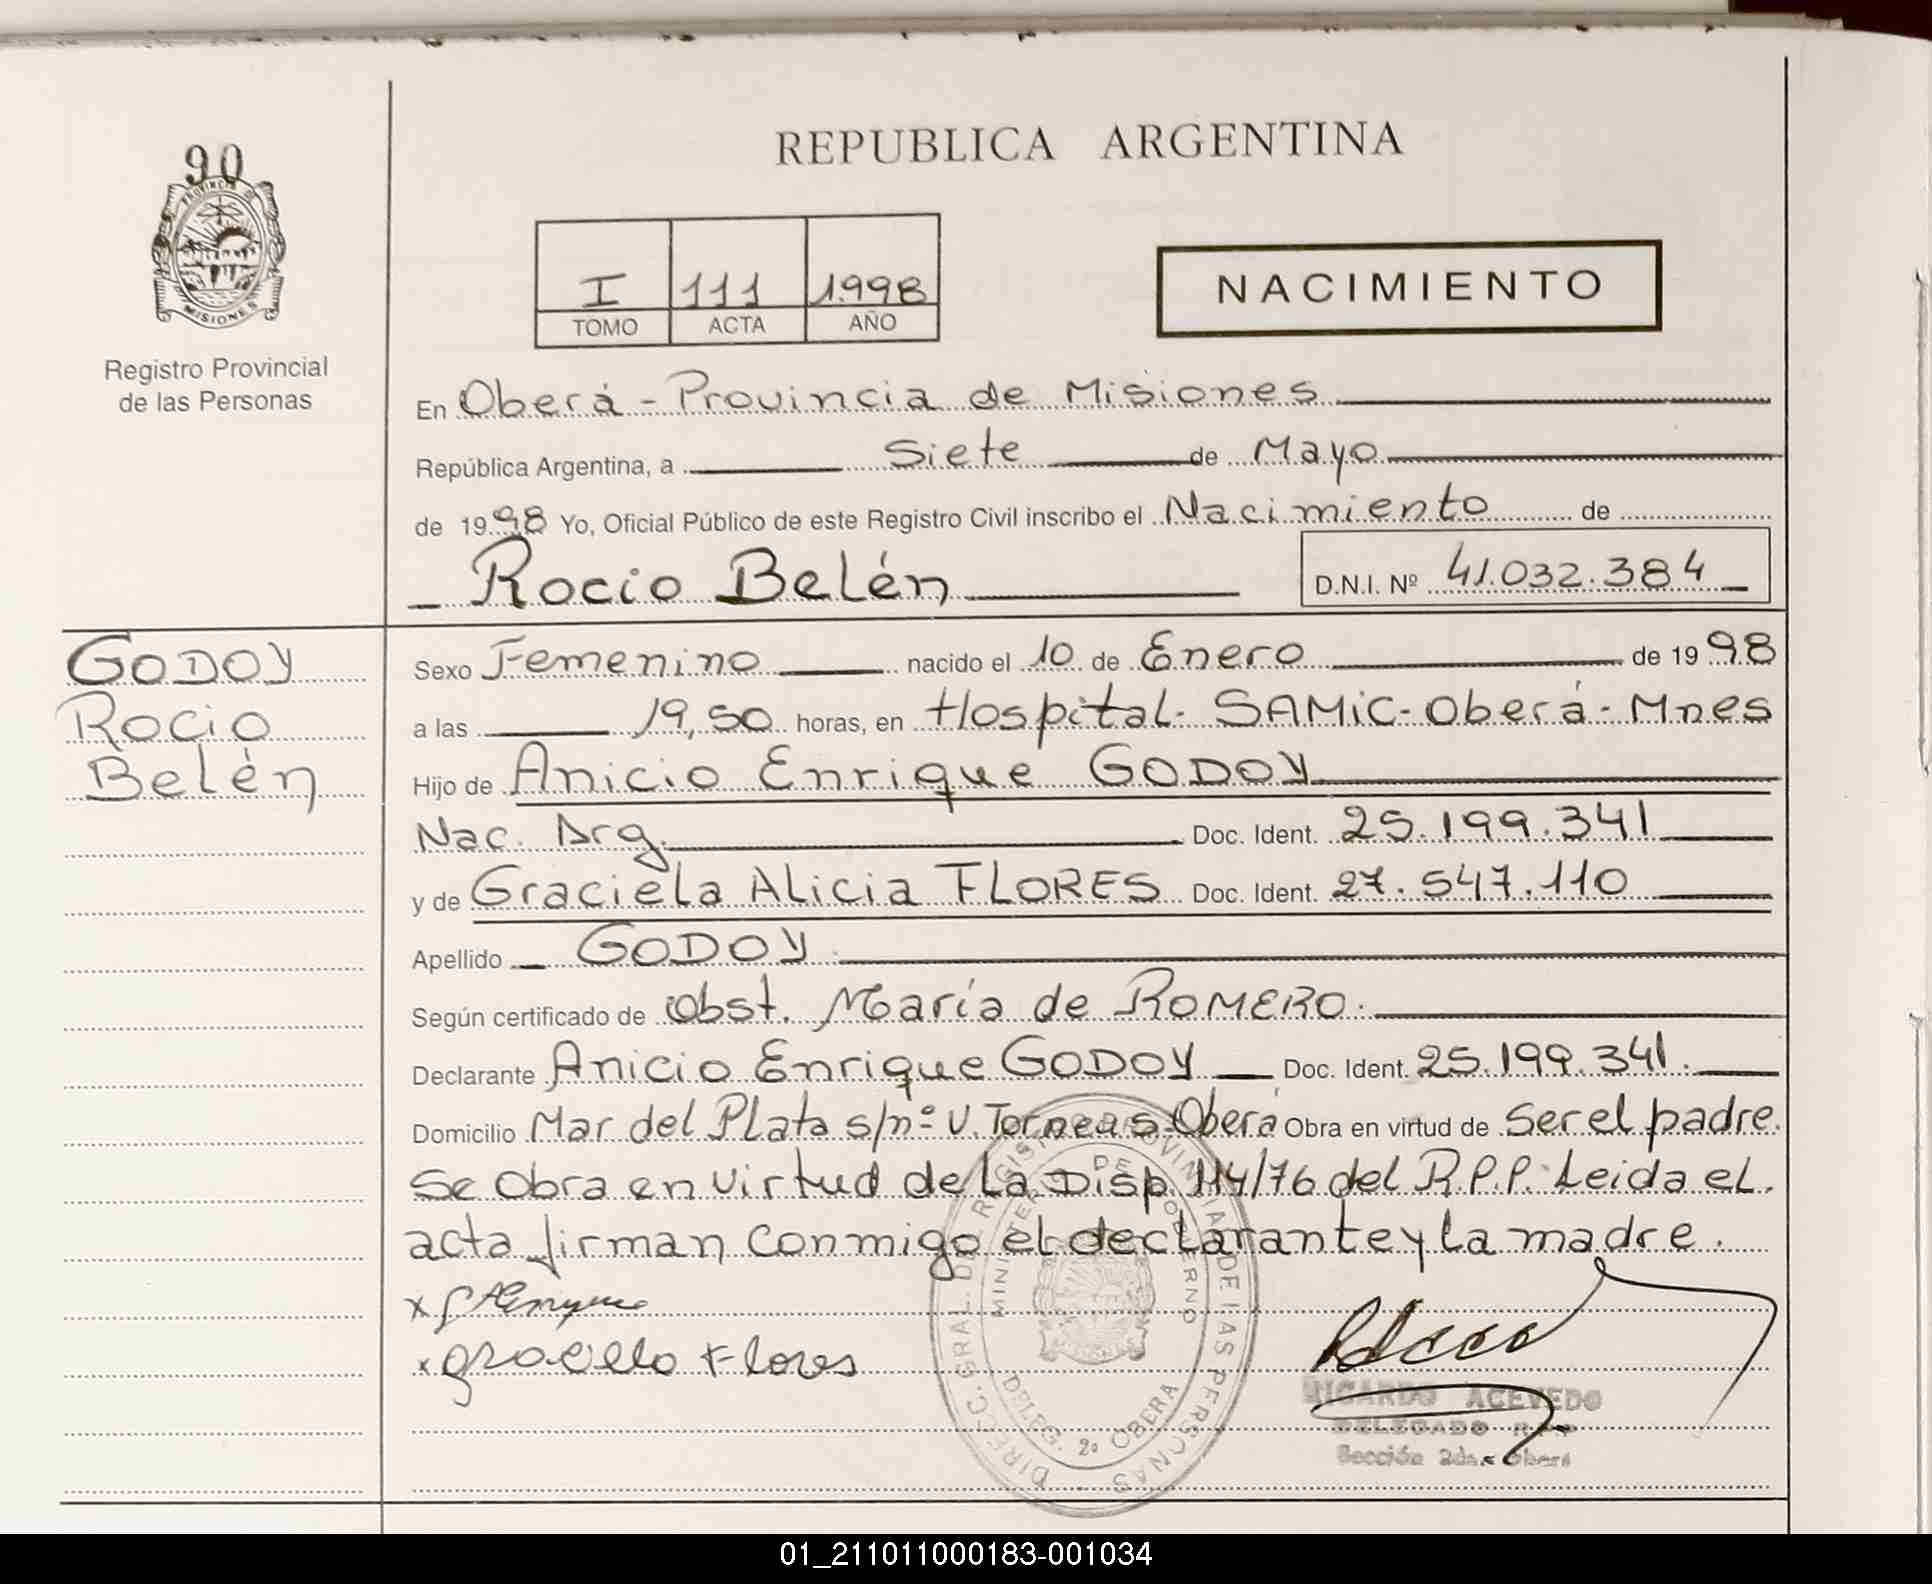 90
PROVINCIA DE
MISIONES
Registro Provincial
de las Personas
REPUBLICA ARGENTINA
I 111 1998
TOMO ACTA AÑO
NACIMIENTO
En Oberá - Provincia de Misiones
República Argentina, a Siete de Mayo
de 1998 Yo, Oficial Público de este Registro Civil inscribo el Nacimiento de
Rocio Belén D.N.I. Nº 41.032.384
GODOY
Rocio
Belén
Sexo Femenino nacido el 10 de Enero de 1998
a las 19,50 horas, en Hospital - SAMIC - Oberá - Mnes
Hijo de Anicio Enrique GODOY
Nac. Arg. Doc. Ident. 25.199.341
y de Graciela Alicia FLORES Doc. Ident. 27.547.110
Apellido GODOY
Según certificado de Obst. María de ROMERO.
Declarante Anicio Enrique GODOY Doc. Ident. 25.199.341.
Domicilio Mar del Plata s/nº V. Torneus Oberá Obra en virtud de Ser el padre.
Se Obra en virtud de la Disp. 114/76 del R.P.P. Leida el
acta firman conmigo el declarante y la madre.
x
x graciela Flores
DIRECC. GRAL. DE REGISTRO PROVINCIAL DE LAS PERSONAS
MINISTERIO DE GOBIERNO
DELEG. 2º OBERA
RICARDO ACEVEDO
DELEGADO R.P.P
Sección 2da. Oberá
01_211011000183-001034